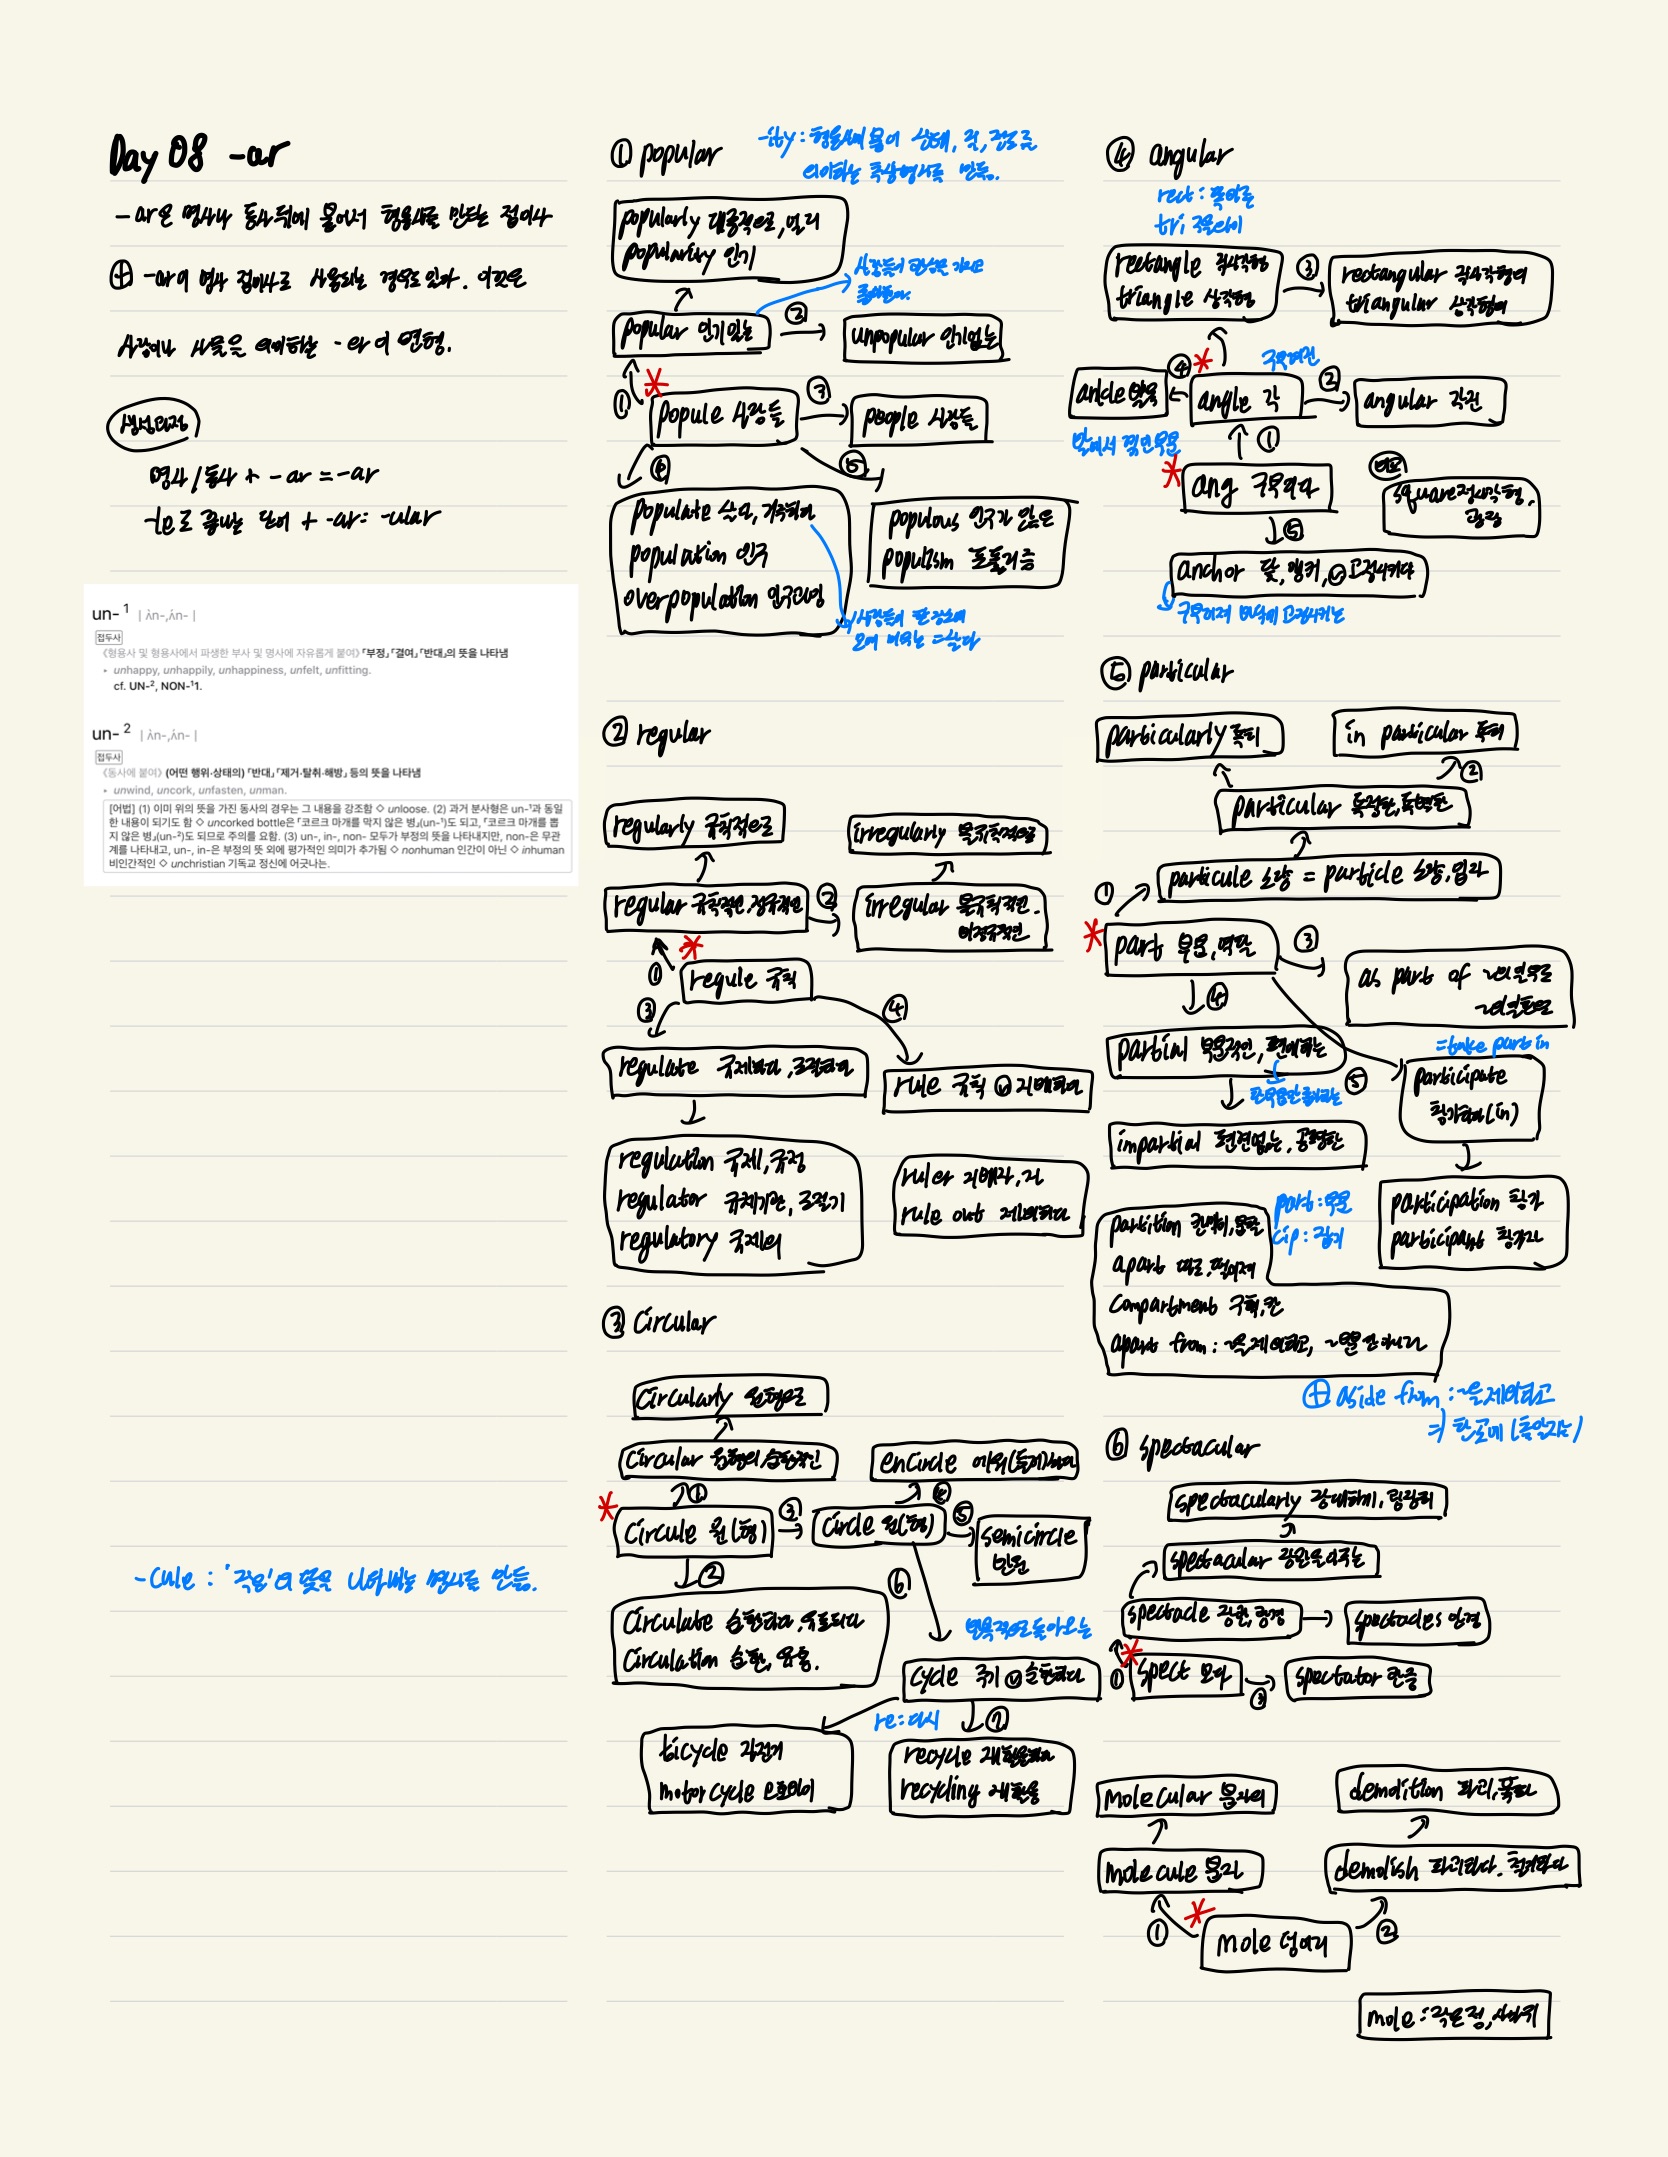 Day 08 -ar
-ar은 명사나 동사 뒤에 붙어서 형용사를 만드는 접미사
⊕ -ar이 명사 접미사로 사용되는 경우도 있다. 이것은
사람이나 사물을 의미하는 -er의 변형.
생성과정
명사/동사 + -ar = -ar
-le로 끝나는 단어 + -ar: -ular
un-1 | ʌ̀n-,ʌ́n- |
접두사
《형용사 및 형용사에서 파생한 부사 및 명사에 자유롭게 붙여》 「부정」「결여」「반대」의 뜻을 나타냄
• unhappy, unhappily, unhappiness, unfelt, unfitting.
cf. UN-2, NON-11.
un-2 | ʌ̀n-,ʌ́n- |
접두사
《동사에 붙여》 (어떤 행위·상태의) 「반대」「제거·탈취·해방」 등의 뜻을 나타냄
• unwind, uncork, unfasten, unman.
[어법] (1) 이미 위의 뜻을 가진 동사의 경우는 그 내용을 강조함 ◇ unloose. (2) 과거 분사형은 un-1과 동일
한 내용이 되기도 함 ◇ uncorked bottle은 「코르크 마개를 막지 않은 병」(un-1)도 되고, 「코르크 마개를 뽑
지 않은 병」(un-2)도 되므로 주의를 요함. (3) un-, in-, non- 모두가 부정의 뜻을 나타내지만, non-은 무관
계를 나타내고, un-, in-은 부정의 뜻 외에 평가적인 의미가 추가됨 ◇ nonhuman 인간이 아닌 ◇ inhuman
비인간적인 ◇ unchristian 기독교 정신에 어긋나는.
-cule : '작은'의 뜻을 나타내는 명사를 만듦.
① popular
-ity : 형용사에 붙어 상태, 질, 정도를
의미하는 추상명사를 만듦.
popularly 대중적으로, 널리
popularity 인기
popular 인기있는
②
unpopular 인기없는
①
popule 사람들
③
people 사람들
④
⑤
populate 살다, 거주하다
population 인구
overpopulation 인구과잉
populous 인구가 많은
populism 포퓰리즘
사람들이 한 장소에
모여 머무는 = 살다
② regular
regularly 규칙적으로
irregularly 불규칙적으로
regular 규칙적인, 정규적인
②
irregular 불규칙적인.
비정규적인
①
regule 규칙
③
④
regulate 규제하다, 조절하다
rule 규칙 ⓥ 지배하다
regulation 규제, 규정
regulator 규제기관, 조절기
regulatory 규제의
ruler 지배자, 자
rule out 제외하다
③ circular
circularly 원형으로
circular 원형의, 순환적인
encircle 에워(둘러)싸다
①
④
circule 원(형)
③
circle 원(형)
⑤
semicircle
반원
②
⑥
circulate 순환하다, 유통되다
circulation 순환, 유통.
반복적으로 돌아오는
cycle 주기 ⓥ 순환하다
re : 다시
⑦
bicycle 자전거
motorcycle 오토바이
recycle 재활용하다
recycling 재활용
④ angular
rect : 똑바른
tri
rectangle 직사각형
triangle 삼각형
③
rectangular 직사각형의
triangular 삼각형의
구부러진
ankle 발목
④
angle 각
②
angular 각진
발에서 꺾인 부분
①
ang 구부리다
비교
square 정사각형,
광장
⑤
anchor 닻, 앵커, ⓥ 고정시키다
구부러져 바닥에 고정시키는
⑤ particular
particularly 특히
in particular 특히
②
particular 특정한, 특별한
①
particule 소량 = particle 소량, 입자
part 부분, 역할
③
as part of ~의 일부로
~의 일환으로
④
partial 부분적인, 편애하는
=take part in
⑤
participate
참가하다(in)
impartial 편견없는, 공평한
part : 부분
cip : 잡기
participation 참가
participant 참가자
partition 칸막이, 분할
apart 따로, 떨어져
compartment 구획, 칸
apart from : ~을 제외하고, ~뿐만 아니라
⊕ aside from : ~을 제외하고
⇒ 한쪽에
⑥ spectacular
spectacularly 장대하게, 굉장히
spectacular 장관을 이루는
spectacle 장관, 광경
spectacles 안경
①
spect 보다
③
spectator 관중
molecular 분자의
demolition 파괴, 폭파
molecule 분자
demolish 파괴하다. 철거하다
①
②
mole 덩어리
mole : 작은 점, 사마귀